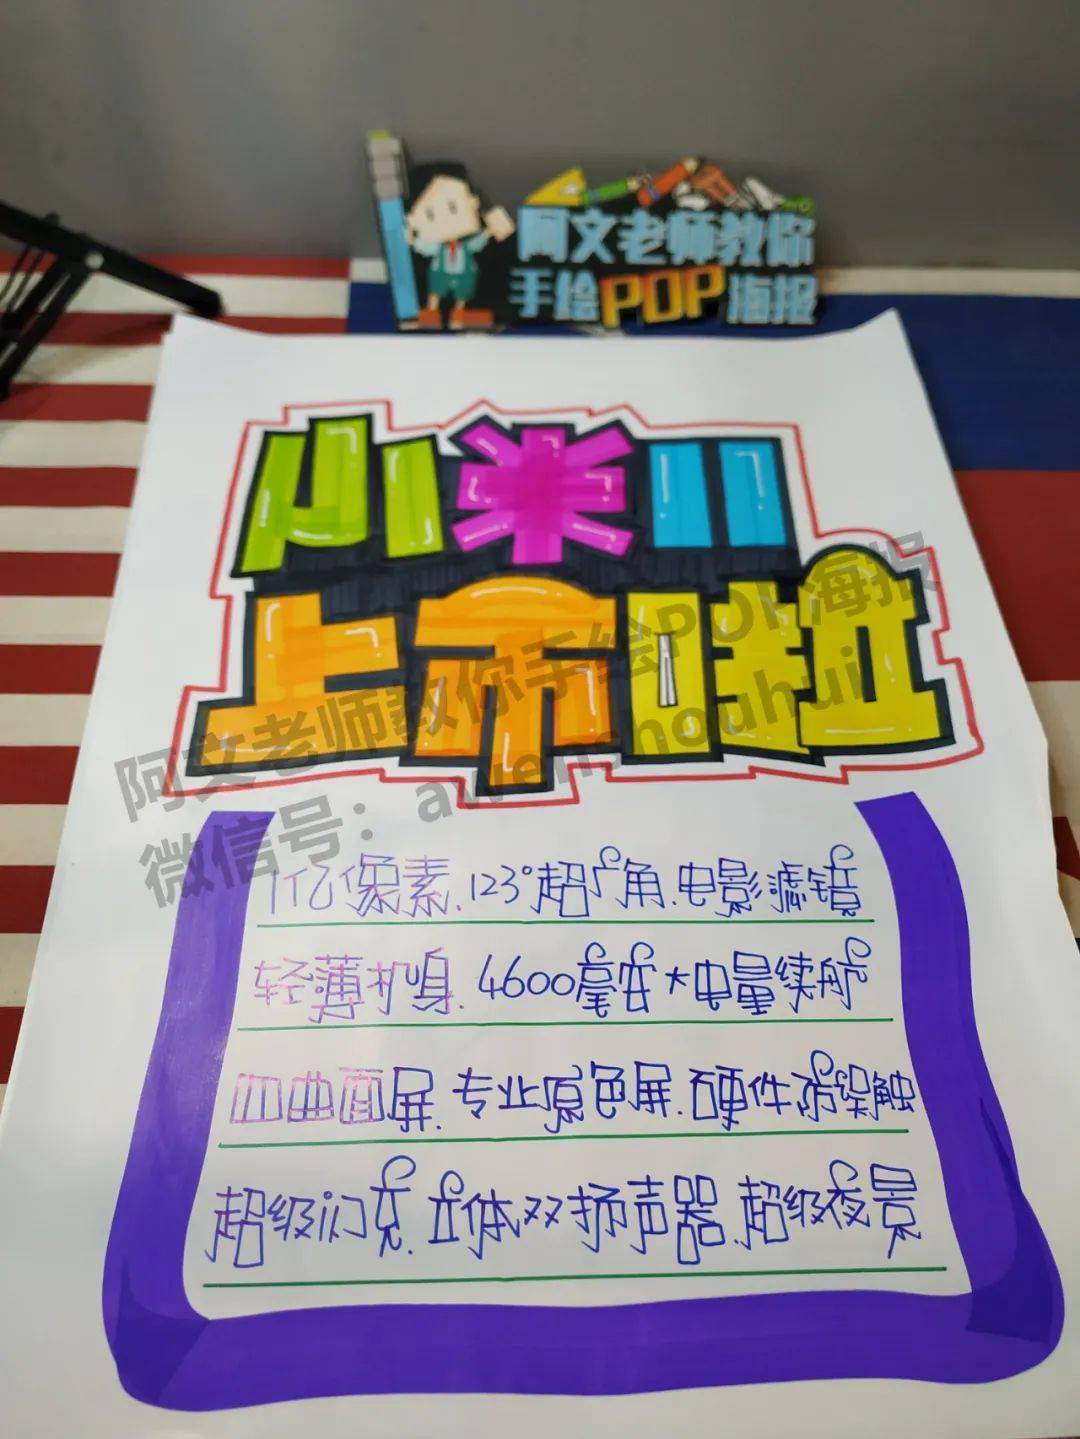 阿文老师教你
手绘POP海报
小米11
上市啦
阿文老师教你手绘POP海报
微信号：awenshouhui
1亿像素.123°超广角.电影滤镜
轻薄机身.4600毫安大电量续航
四曲面屏.专业原色屏.硬件防误触
超级闪充.立体双扬声器.超级夜景